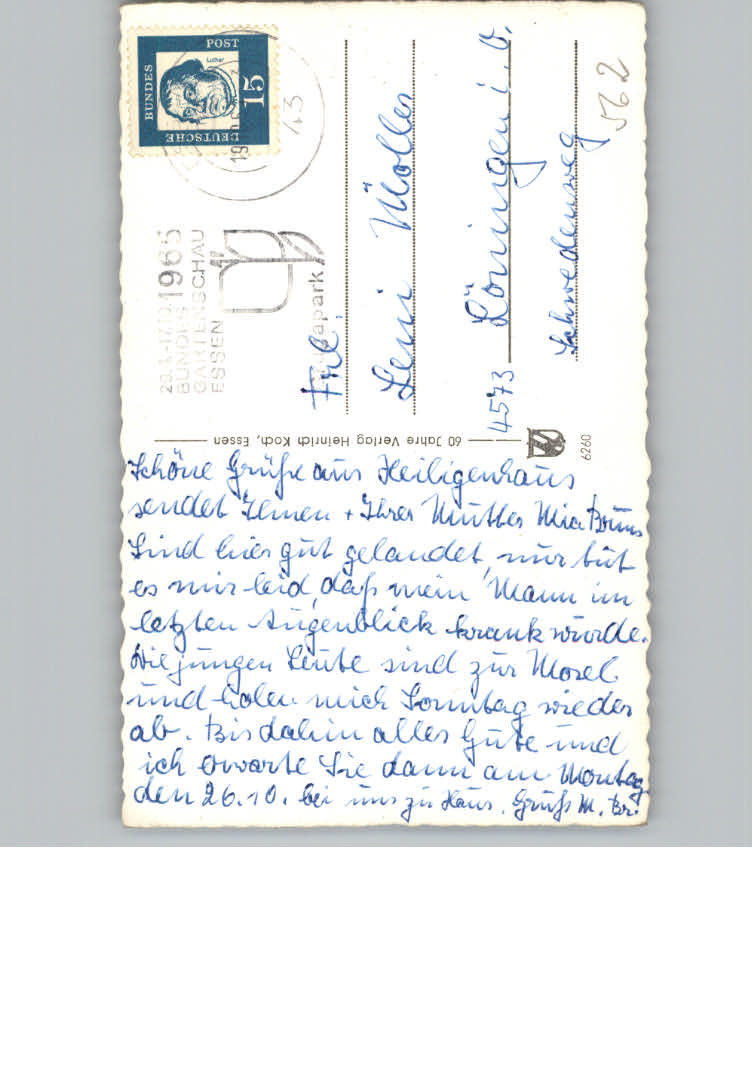 DEUTSCHE
BUNDES
POST
15
Luther
43
1965
BUNDES
GARTENSCHAU
ESSEN
Frl.
Leni Moller
4573 Löningen i. O.
Schwedenweg
562
6260
60 Jahre Verlag Heinrich Koch, Essen
Schöne Grüße aus Heiligenhaus
sendet Ihnen + Ihrer Mutter Mia Bruns
Sind hier gut gelandet, nur tut
es mir leid, daß mein Mann im
letzten Augenblick krank wurde.
Die jungen Leute sind zur Mosel
und holen mich Sonntag wieder
ab. Bis dahin alles Gute und
ich erwarte Sie dann am Montag
den 26.10. bei uns zu Haus. Gruß M. Br.